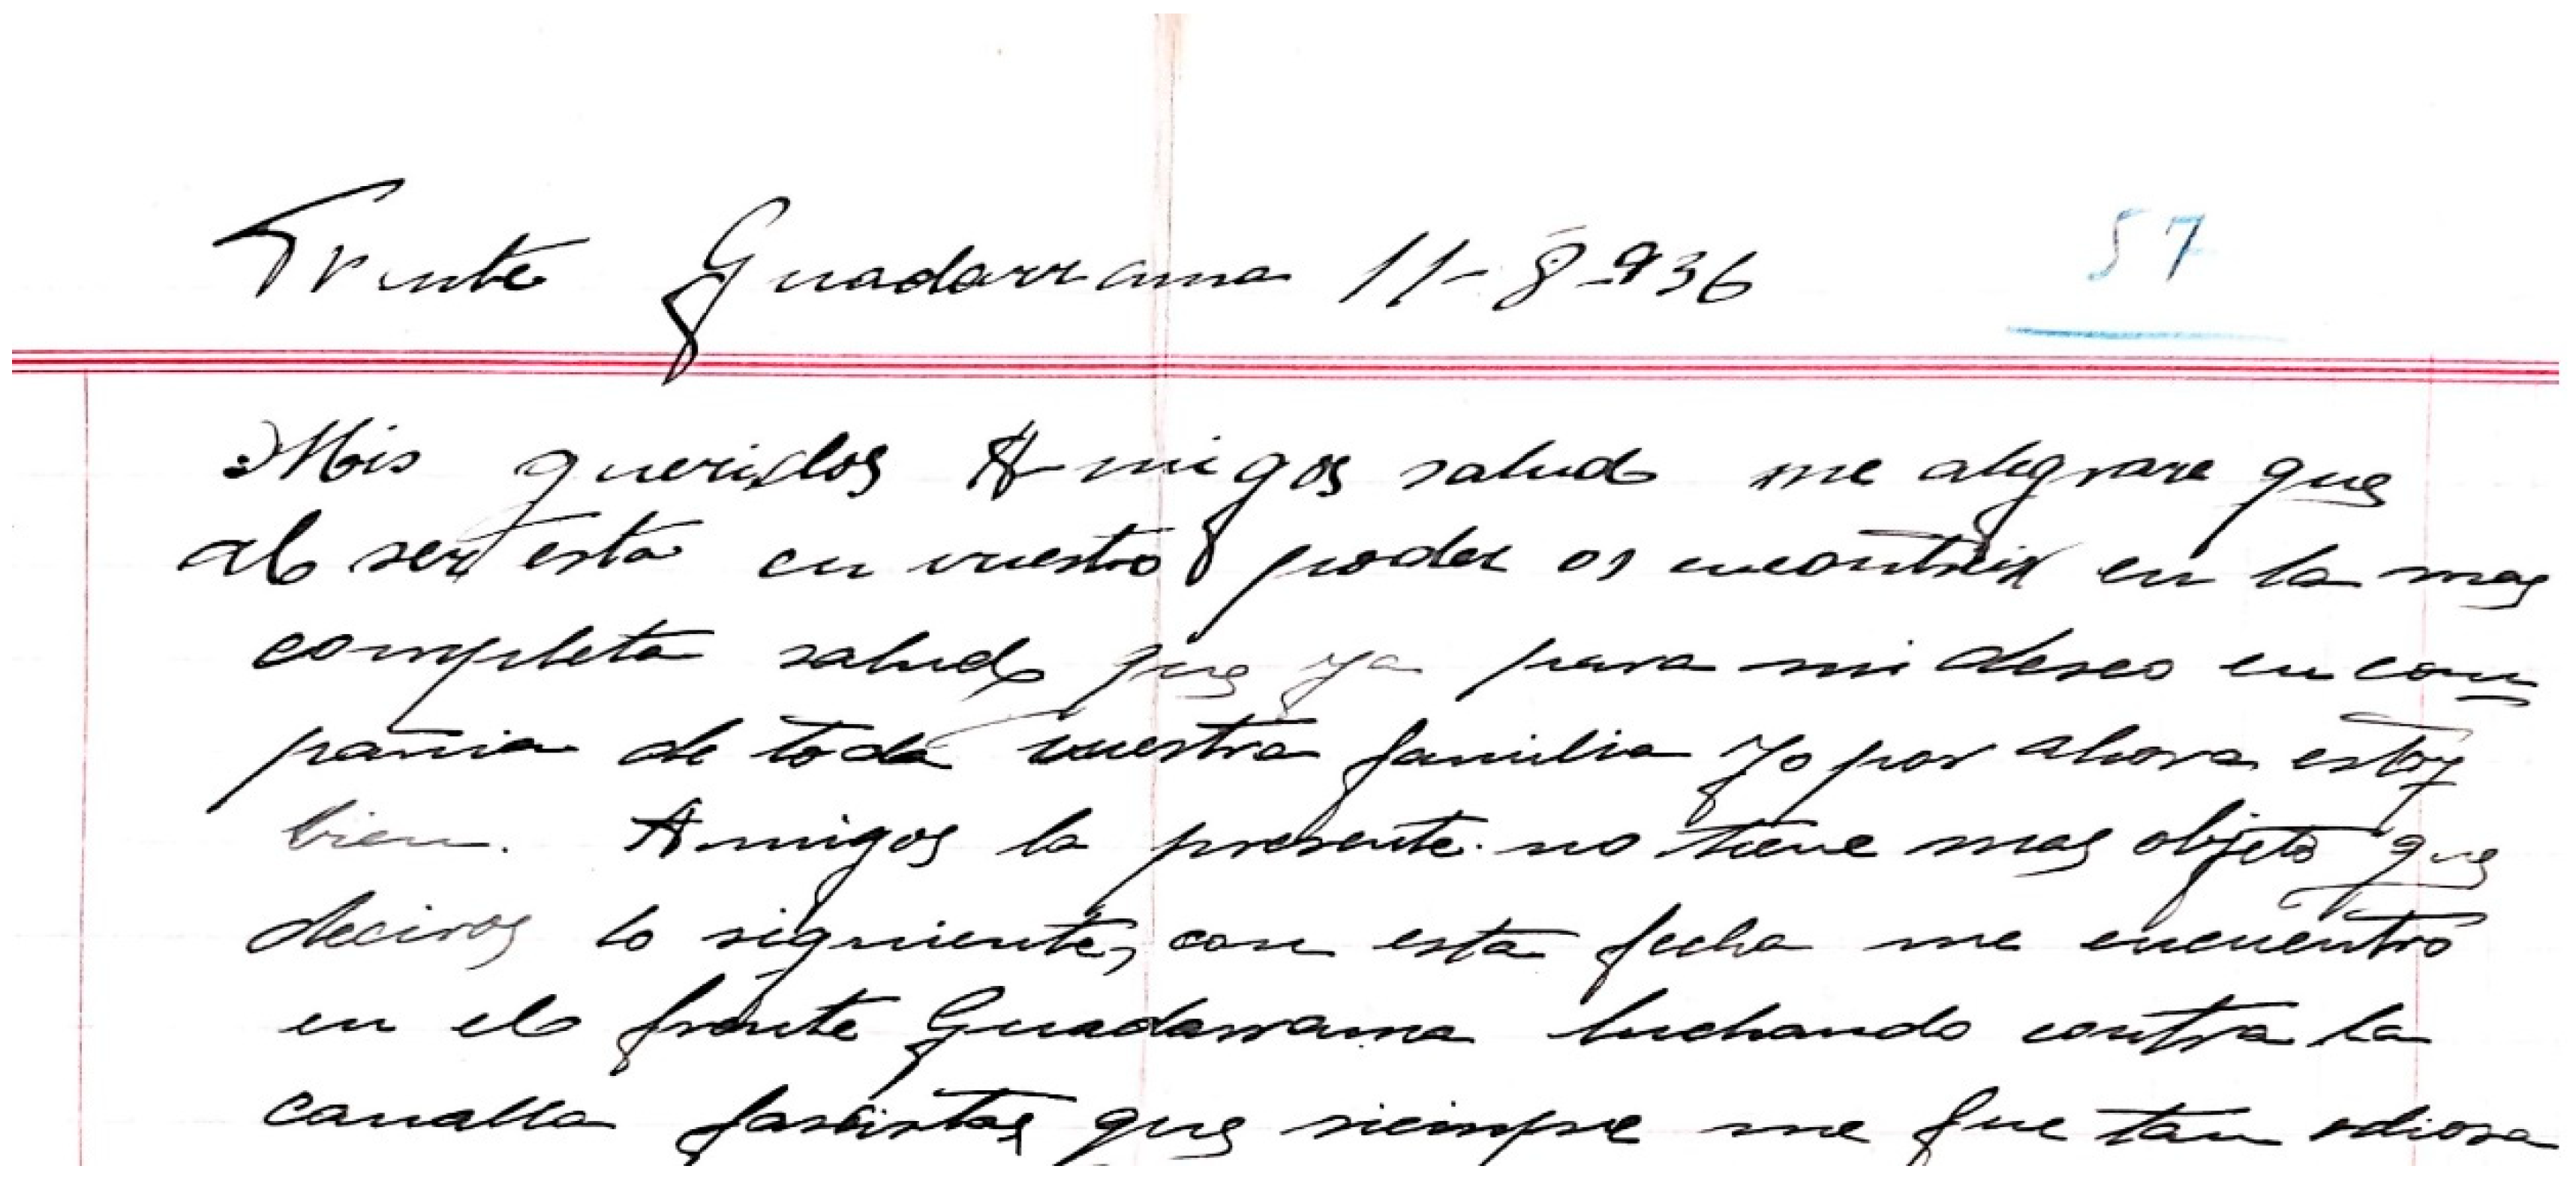 Frente Guadarrama 11-8-936
57
Mis queridos Amigos salud me alegrare que
al ser esta en vuestro poder os encontreis en la mas
completa salud que yo para mi deseo en com
pañia de toda vuestra familia yo por ahora estoy
bien. Amigos la presente no tiene mas objeto que
deciros lo siguiente, con esta fecha me encuentro
en el frente Guadarrama luchando contra la
canalla fascistas que siempre me fue tan odiosa